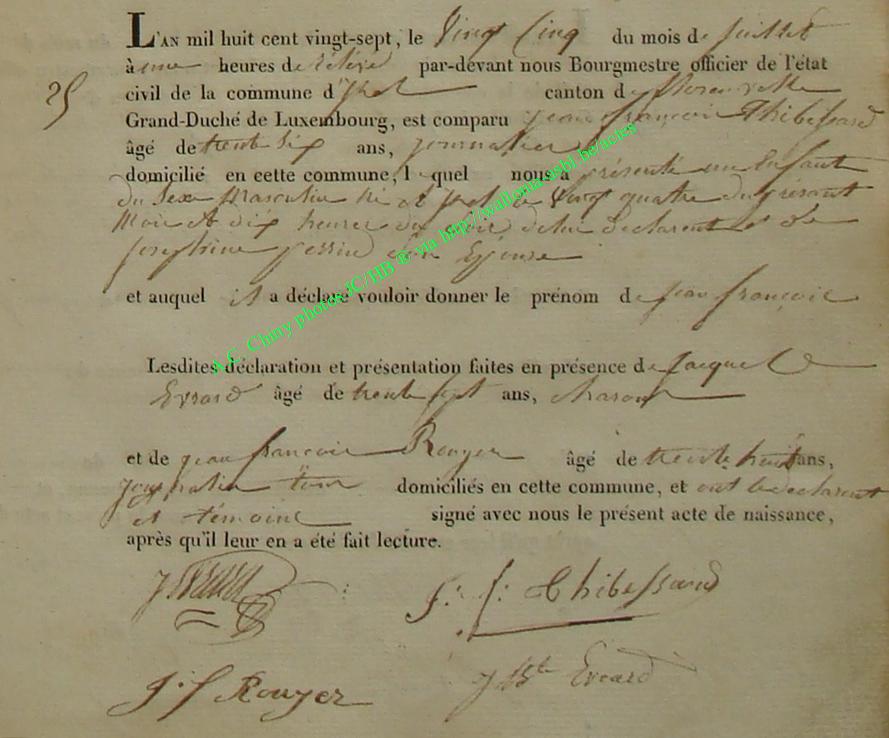 L'AN mil huit cent vingt-sept, le Vingt Cinq du mois de juillet
25
à une heures de relevé par-devant nous Bourgmestre officier de l'état
civil de la commune d'Izel canton de florenville
Grand-Duché de Luxembourg, est comparu jean françois Thibessard
âgé de trente six ans, journalier
domicilié en cette commune, lequel nous a présenté un Enfant
du Sexe Masculin né à Izel le Vingt quatre du présent
Mois à dix heures du soir de lui declarant et de
josephine son Epouse
et auquel il a déclaré vouloir donner le prénom de jean françois
Lesdites déclaration et présentation faites en présence de jacque
Evrard âgé de trente sept ans, charon
et de jean françois Rouyer âgé de trente huit ans,
journalier tous domiciliés en cette commune, et ont le declarant
et témoins signé avec nous le présent acte de naissance,
après qu'il leur en a été fait lecture.
J Evrard J: f: Thibessard
J. f Rouyer J Bte Evrard
A.C. Chiny photos JC/HB ® via http://wallonia.asbl.be/actes